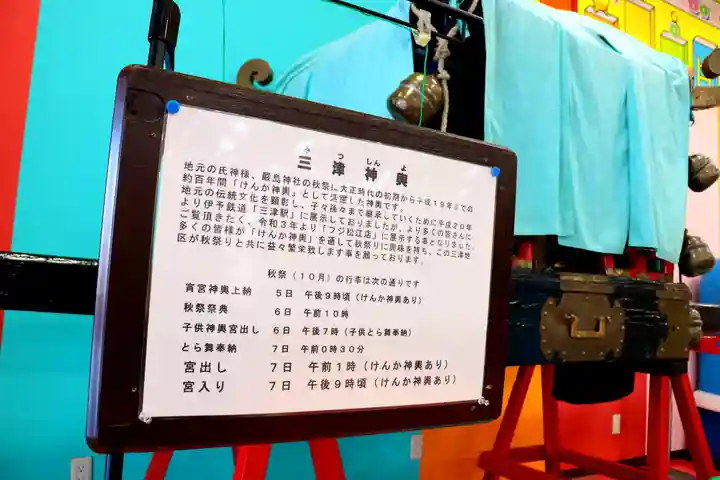 み つ しん よ
三津神輿
地元の氏神様、厳島神社の秋祭に大正時代の初期から平成19年までの
約百年間「けんか神輿」として活躍した神輿です。
地元の伝統文化を顕彰し、子々孫々まで継承していくために平成20年
より伊予鉄道「三津駅」に展示しておりましたが、より多くの皆さんに
ご覧頂きたく、令和3年より「フジ松江店」に展示する事となりました。
多くの皆様が「けんか神輿」を通して秋祭りに興味を持ち、この三津地
区が秋祭りと共に益々繁栄致します事を願っております。
秋祭(10月)の行事は次の通りです
宵宮神輿上納 5日 午後9時頃(けんか神輿あり)
秋祭祭典 6日 午前10時
子供神輿宮出し 6日 午後7時(子供とら舞あり)
とら舞奉納 7日 午前0時30分
宮出し 7日 午前1時(けんか神輿あり)
宮入り 7日 午後9時頃(けんか神輿あり)